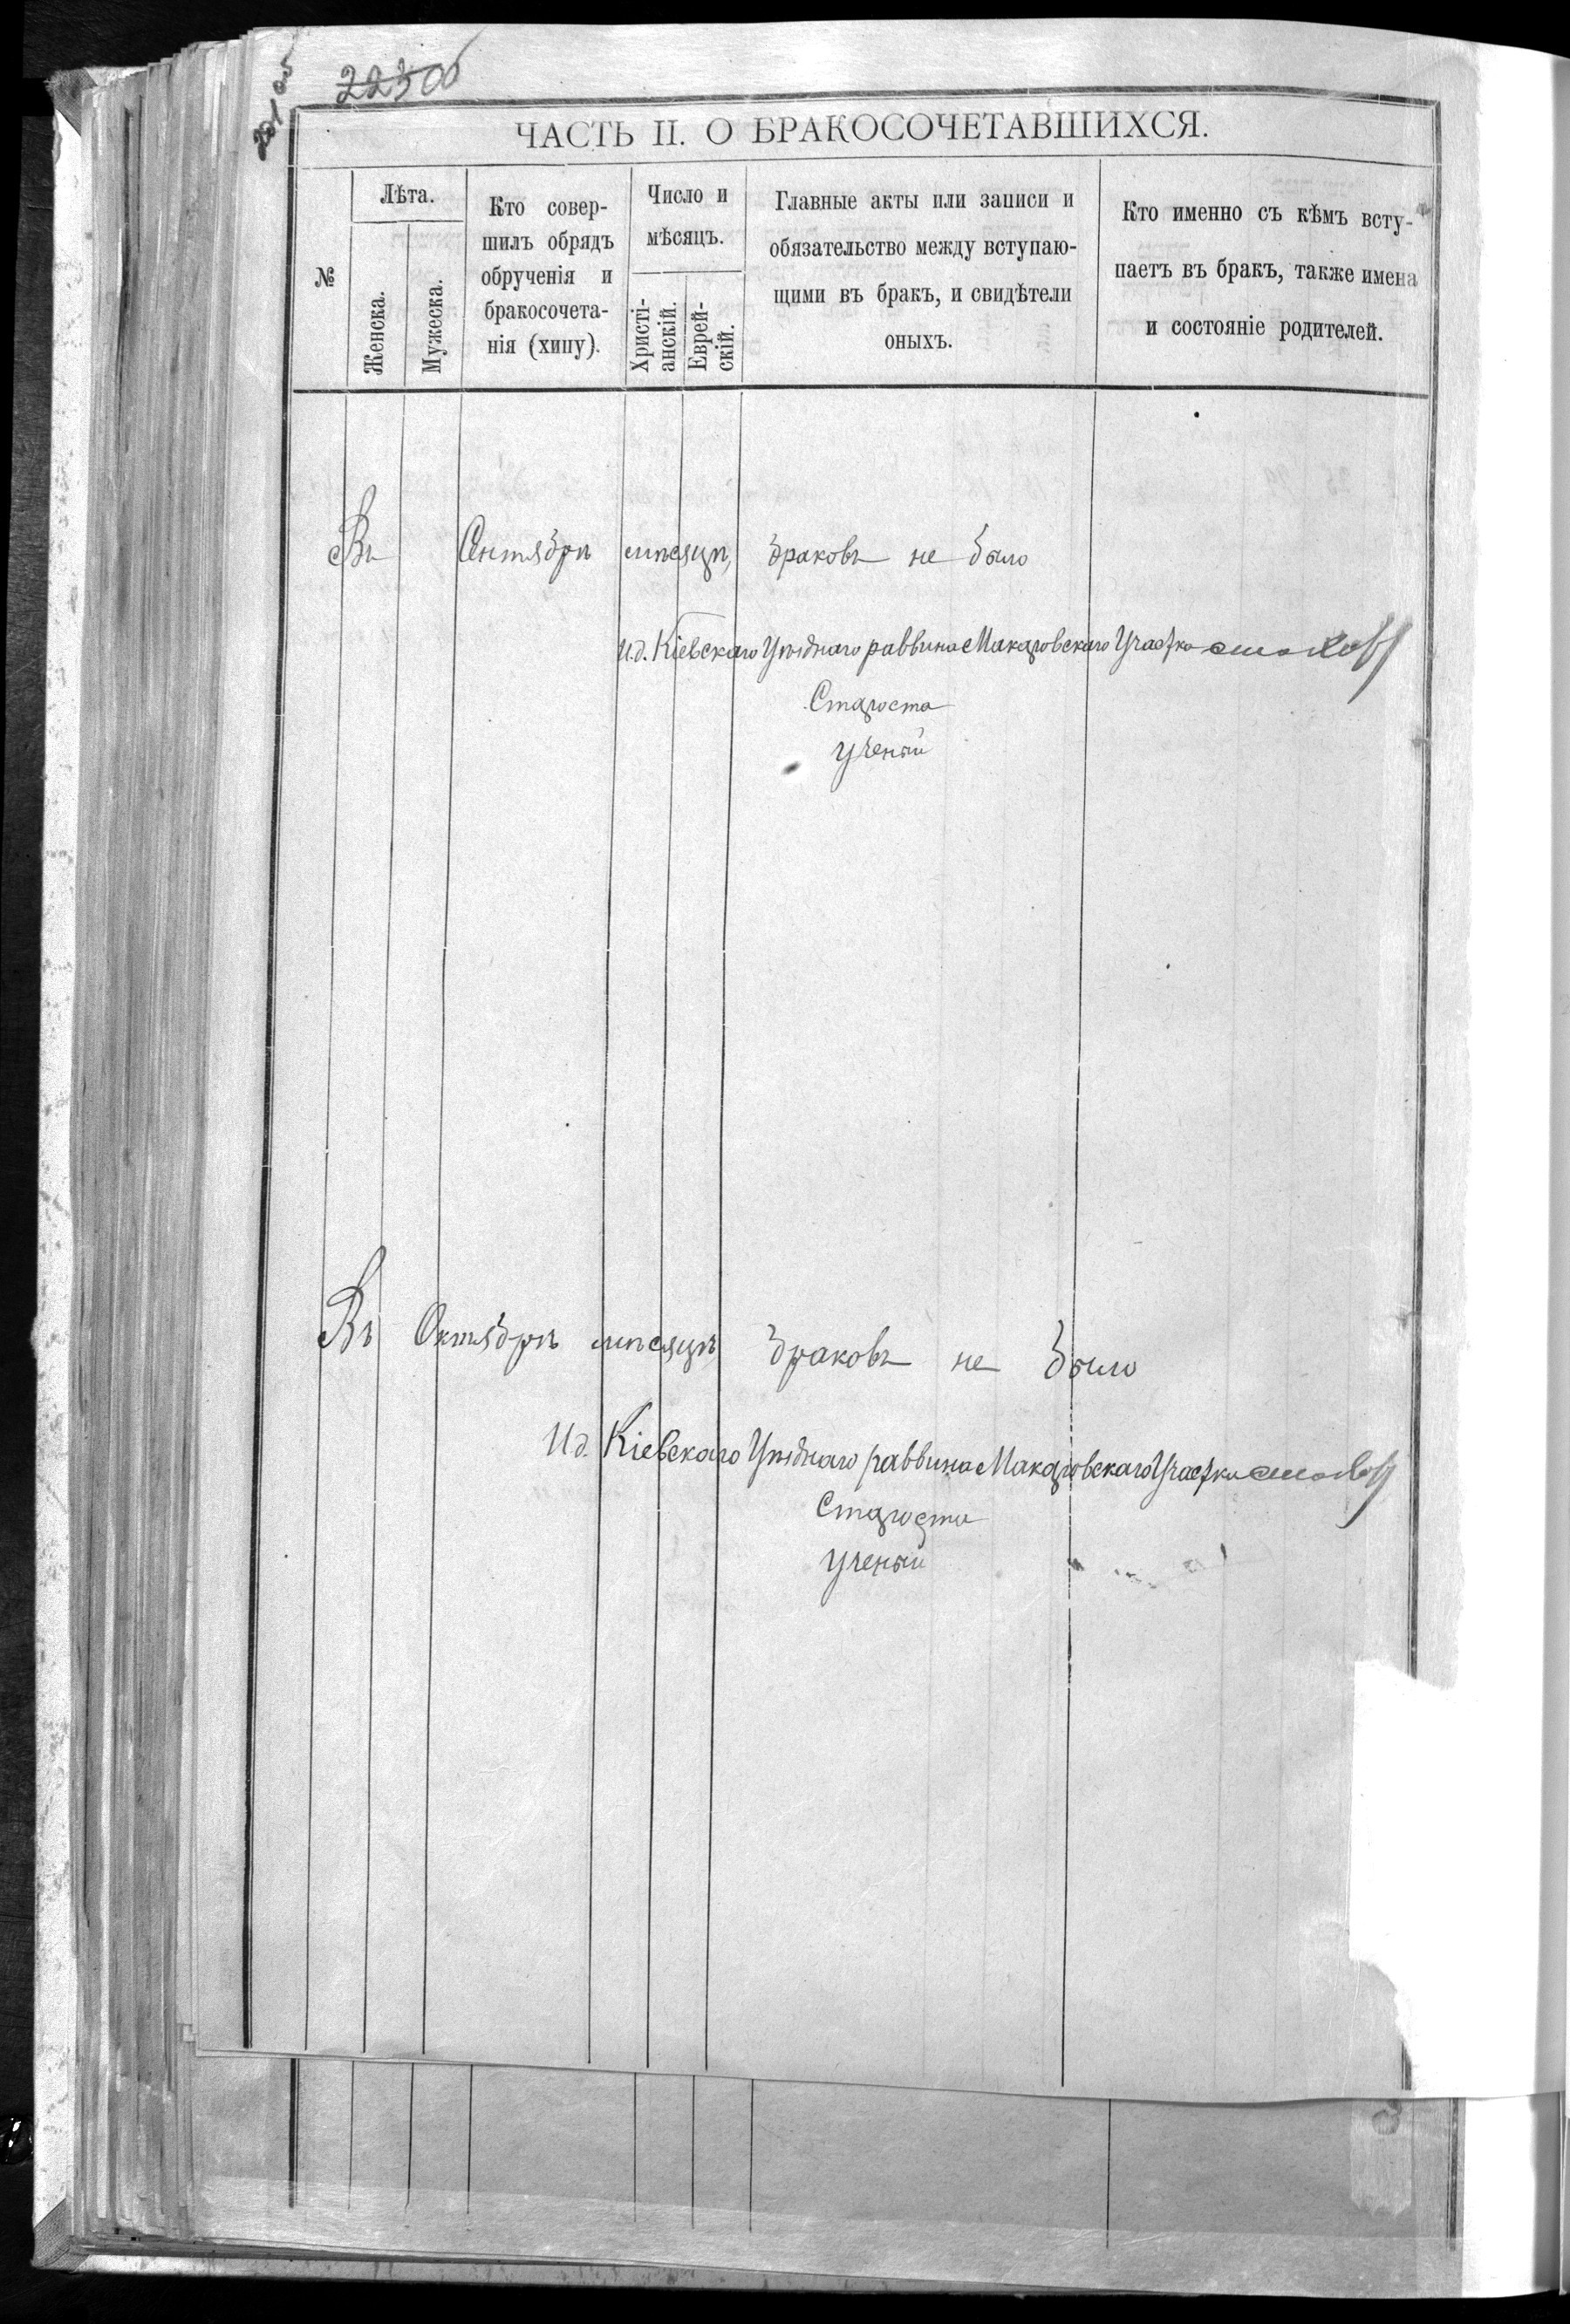 223 об
ЧАСТЬ II. О БРАКОСОЧЕТАВШИХСЯ.
№
Лѣта.
Женска.
Мужеска.
Кто совер-
шилъ обрядъ
обрученія и
бракосочета-
нія (хипу).
Число и
мѣсяцъ.
Христі-
анскій.
Еврей-
скій.
Главные акты или записи и
обязательство между вступаю-
щими въ бракъ, и свидѣтели
оныхъ.
Кто именно съ кѣмъ всту-
паетъ въ бракъ, также имена
и состояніе родителей.
Въ Сентябрѣ мѣсяцѣ браковъ не было
И.д. Кіевскаго Уѣзднаго раввина Макаровскаго Участка
Староста
Ученый
Въ Октябрѣ мѣсяцѣ браковъ не было
И.д. Кіевскаго Уѣзднаго раввина Макаровскаго Участка
Староста
Ученый